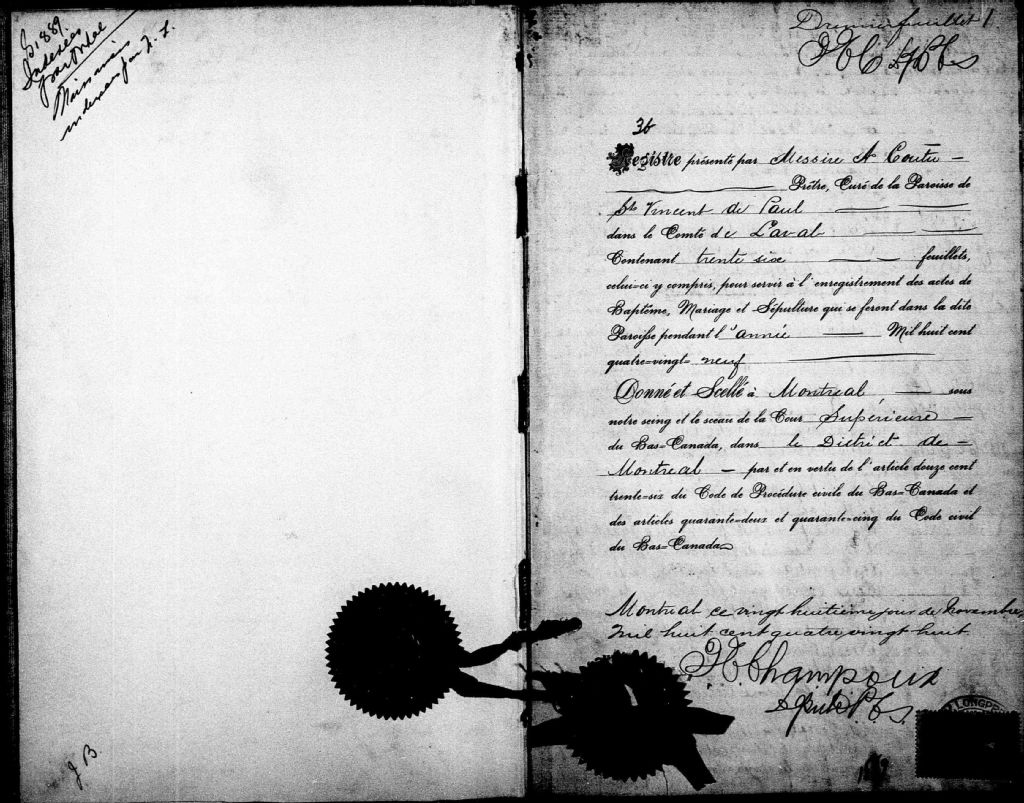 1889.
Indexées
J. B.
Premier feuillet 1
36
Registre présenté par Messire A Coutu
Prêtre, Curé de la Paroisse de
St Vincent de Paul
dans le Comté de Laval
Contenant trente six feuillets,
celui-ci y compris, pour servir à l'enregistrement des actes de
Baptême, Mariage et Sépulture qui se feront dans la dite
Paroisse pendant l'année Mil huit cent
quatre-vingt neuf
Donné et Scellé à Montreal, sous
notre seing et le sceau de la Cour Supérieure
du Bas-Canada, dans le District de
Montreal par et en vertu de l'article douze cent
trente-six du Code de Procédure civile du Bas-Canada et
des articles quarante-deux et quarante-cinq du Code civil
du Bas-Canada
Montreal ce vingt huitième jour de Novembre,
Mil huit cent quatre vingt huit
Champoux
LONGP